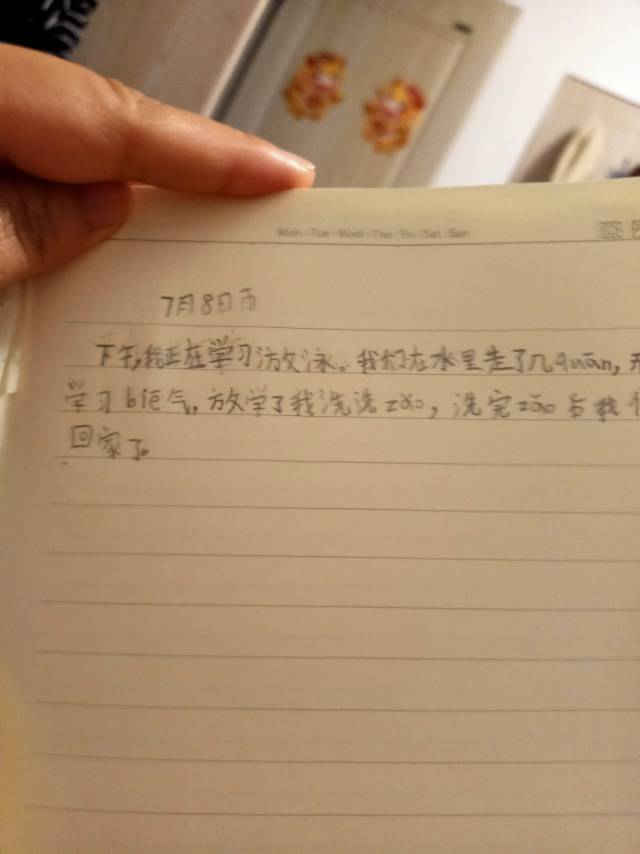 Mon Tue Wed Thu Fri Sat Sun
7月8日雨
下午,我正在学习游泳。我们在水里走了几quān,
学习biē气,放学了我洗洗zǎo,洗完zǎo后我们
回家了。